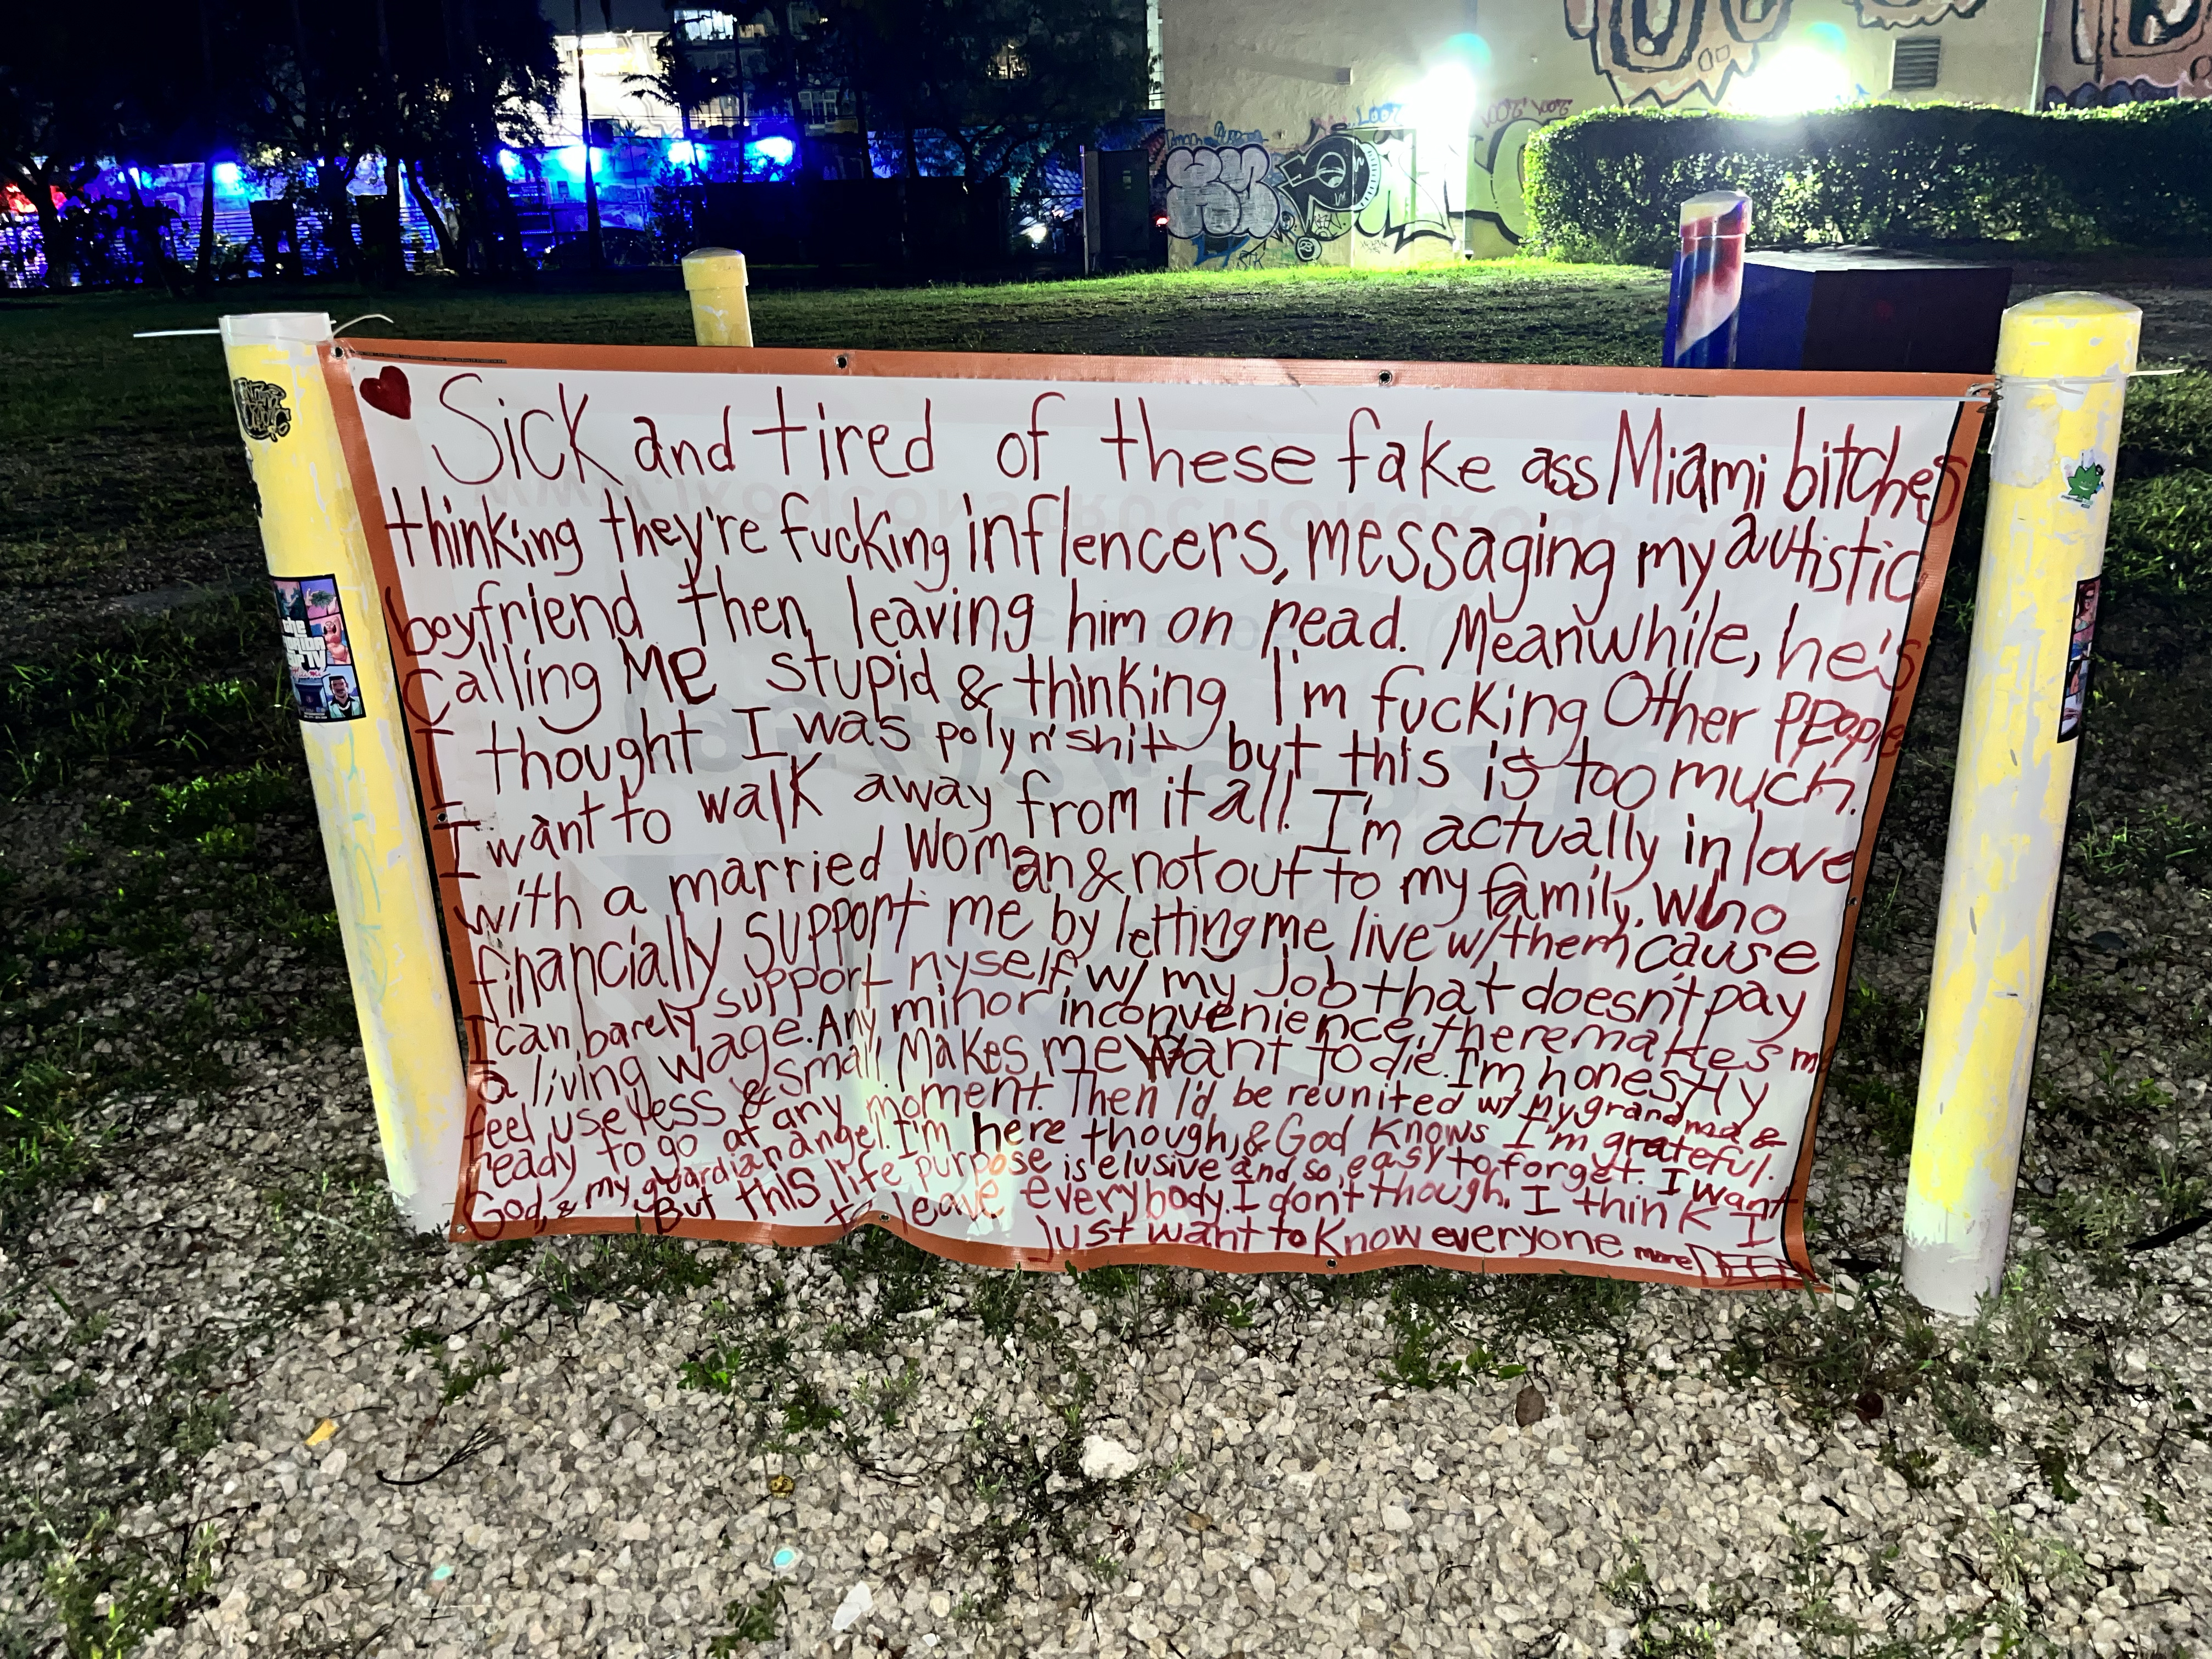 Sick and tired of these fake ass Miami bitches
thinking they're fucking inflencers, messaging my autistic
boyfriend then leaving him on read. Meanwhile, he's
calling ME stupid & thinking I'm fucking Other people
I thought I was poly n' shit but this is too much.
I want to walk away from it all. I'm actually in love
with a married woman & not out to my family, who
financially support me by letting me live w/ them cause
I can barely support myself w/ my job that doesn't pay
a living wage. Any minor inconvenience there makes me
feel useless & small. Makes me want to die. I'm honestly
ready to go at any moment. Then I'd be reunited w/ my grandma &
God, & my guardian angel. I'm here though, & God knows I'm grateful.
But this life purpose is elusive and so easy to forget. I want
to leave everybody. I don't though. I think I
just want to know everyone more DEEP